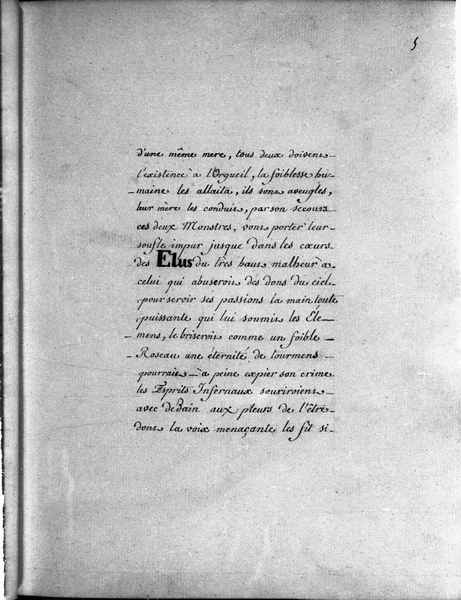 5
d'une même mere, tous deux doivent
l'existence à l'Orgueil, la foiblesse hu-
maine les allaita, ils sont aveugles,
leur mère les conduit, par son secours
ces deux Monstres, vont porter leur
soufle impur jusque dans les cœurs
des Elus du très haut malheur à
celui qui abuseroit des dons du ciel
pour servir ses passions la main toute
puissante qui lui soumit les Ele-
mens, le briseroit comme un foible
Roseau une éternité de tourmens
pourrait à peine expier son crime
les Esprits Infernaux souriroient
avec dédain aux pleurs de l'être
dont la voix menaçante les fit si-